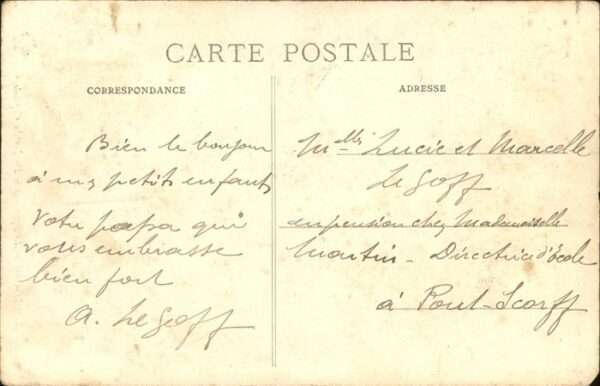 CARTE POSTALE
CORRESPONDANCE
Bien le bonjour
à mes petits enfants
Votre papa qui
vous embrasse
bien fort
A. Le Goff
ADRESSE
Melles Lucie et Marcelle
Le Goff
en pension chez Mademoiselle
Martin - Directrice d'École
à Pont-Scorff